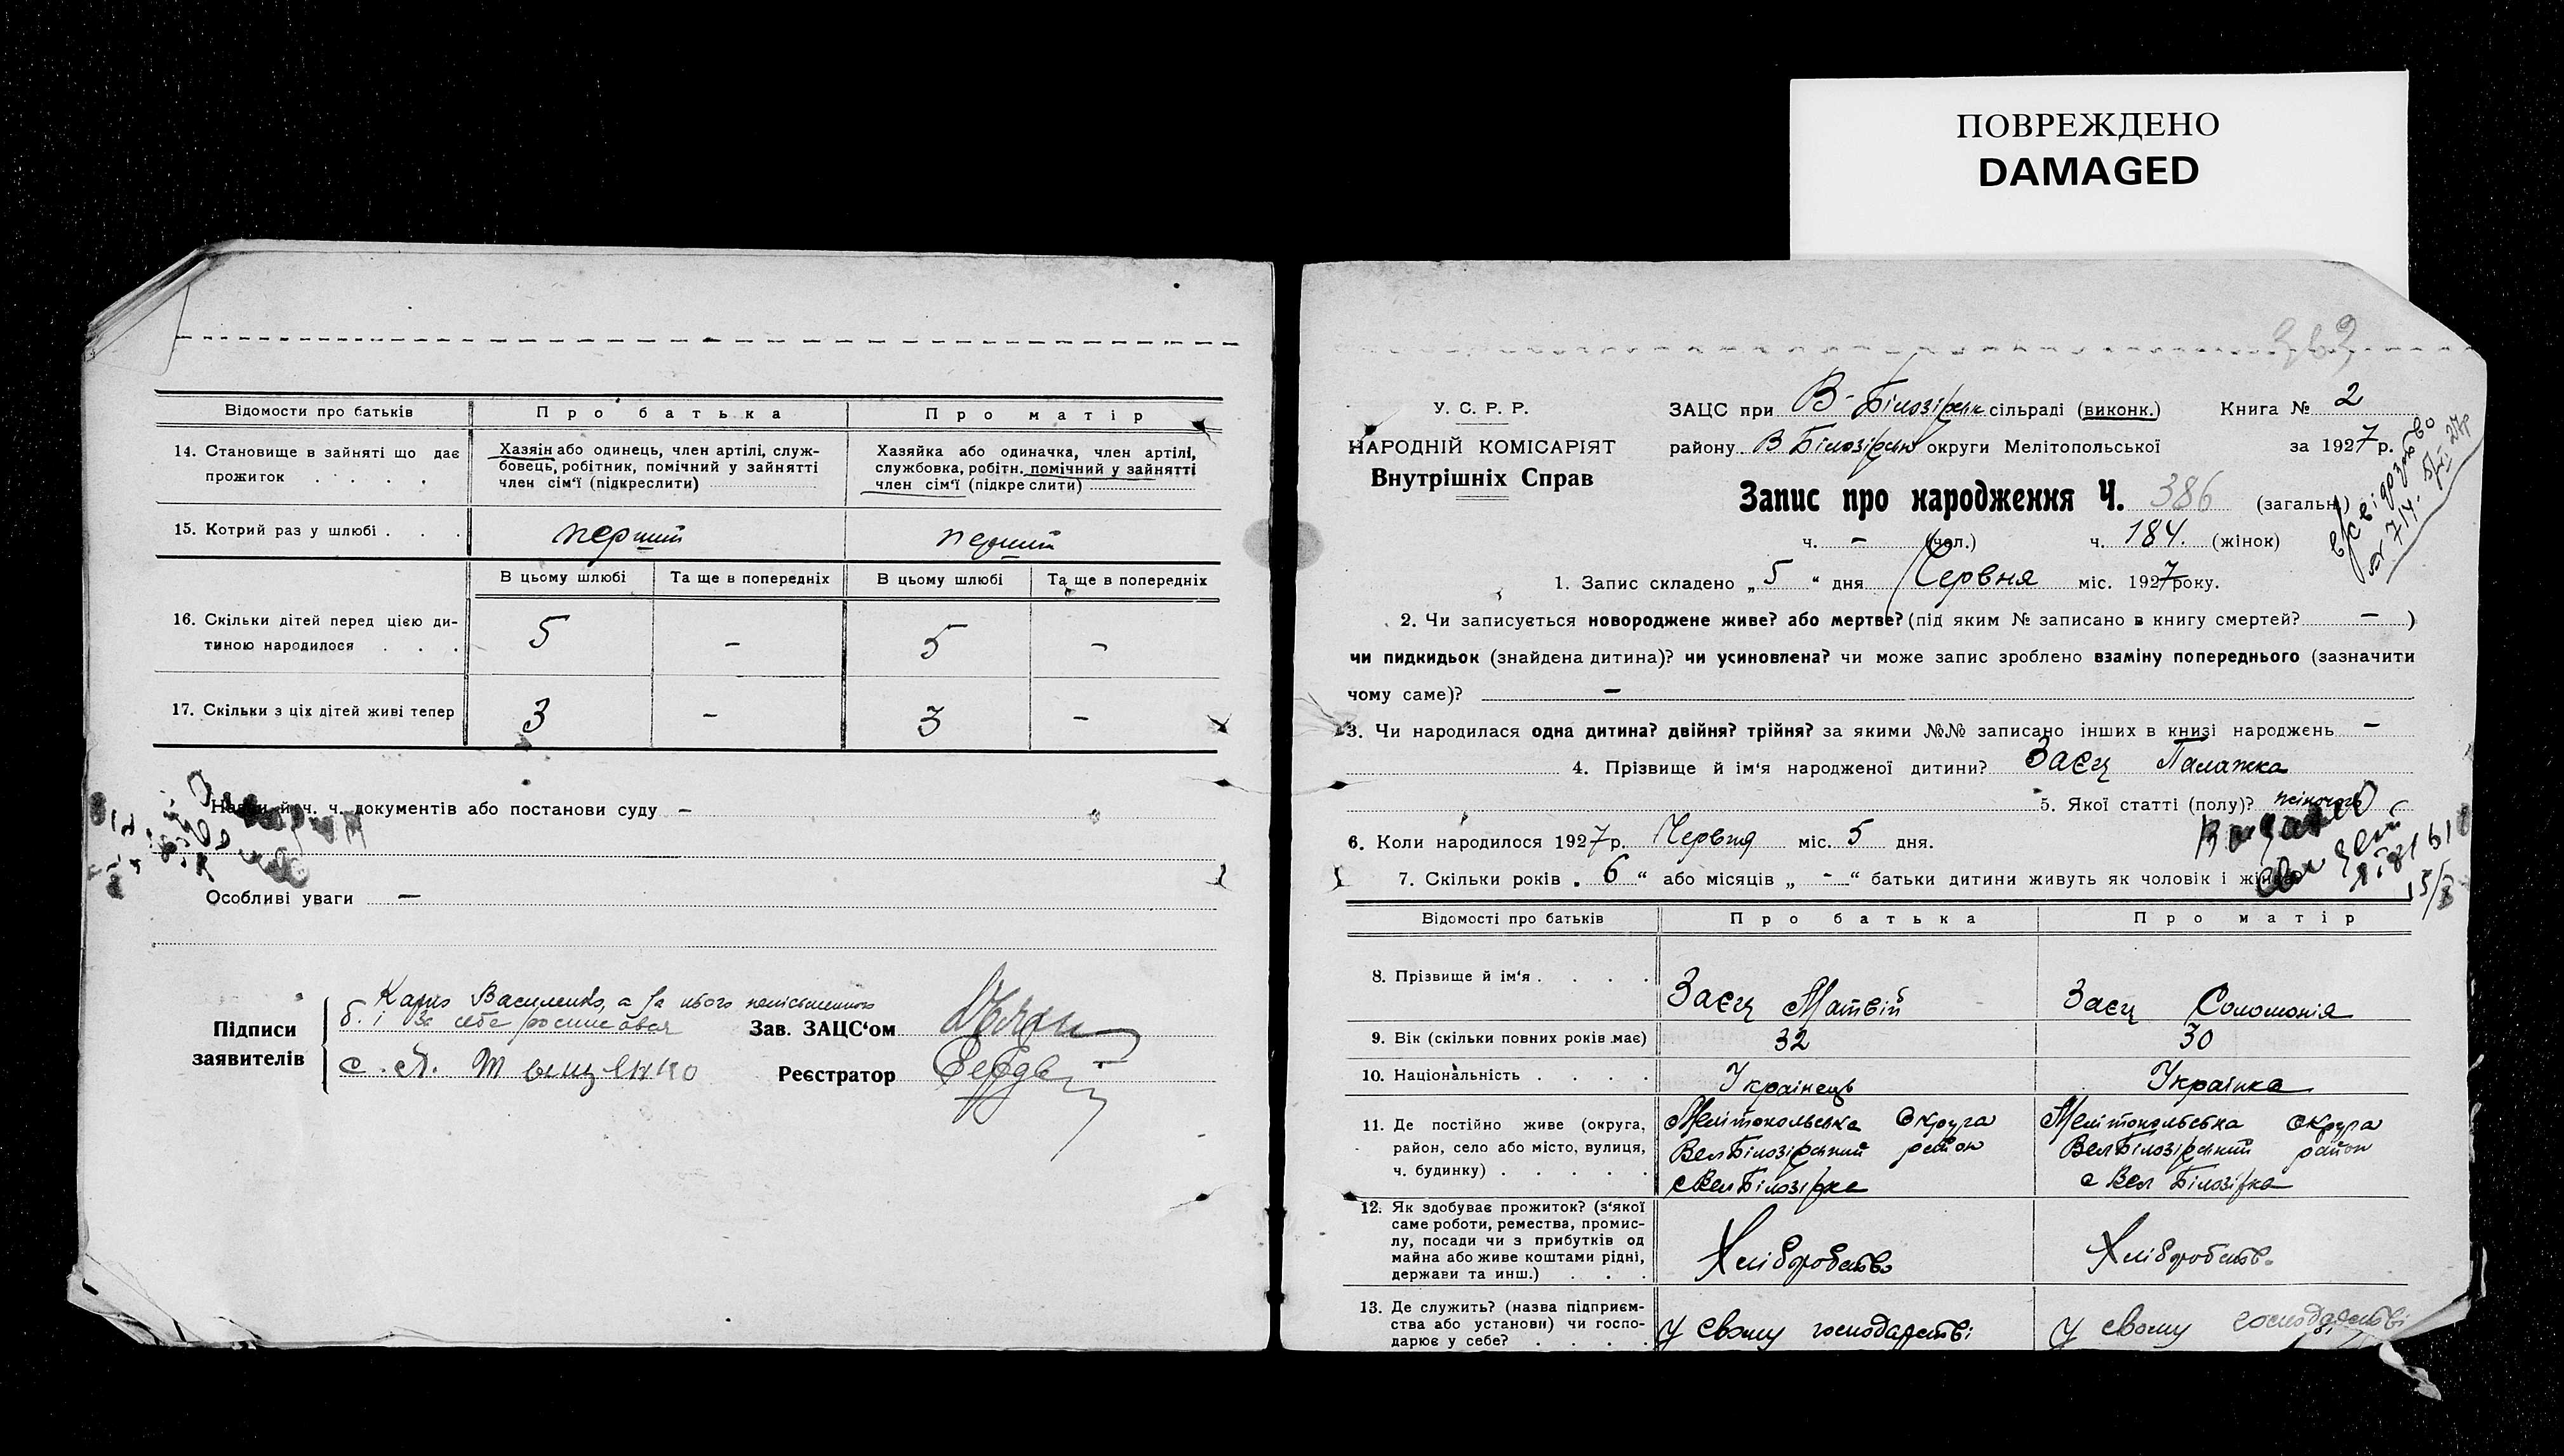 ПОВРЕЖДЕНО
DAMAGED
Відомости про батьків
Про батька
Про матір
14. Становище в зайняті що дає прожиток . . . .
Хазяін або одинець, член артілі, служ-
бовець, робітник, помічний у зайнятті
член сім'ї (підкреслити)
Хазяйка або одиначка, член артілі,
службовка, робітн. помічний у зайнятті
член сім'ї (підкре слити)
15. Котрий раз у шлюбі . . .
перший
перший
В цьому шлюбі
Та ще в попередніх
В цьому шлюбі
Та ще в попередніх
16. Скільки дітей перед цією ди-
тиною народилося . . .
5 - 5 -
17. Скільки з ціх дітей живі тепер
3 - 3 -
ч. ч. документів або постанови суду -
Особливі уваги -
Підписи
заявителів
Василенко, а за нього
за себе
Зав. ЗАЦС'ом
Реєстратор
У. С. Р. Р.
НАРОДНІЙ КОМІСАРІЯТ
Внутрішніх Справ
ЗАЦС при В-Білозірськ сільраді (виконк.) Книга № 2
району В Білозірськ округи Мелітопольської за 1927 р.
Запис про народження Ч. 386 (загальн.)
ч. - (чол.) ч. 184. (жінок)
1. Запис складено „5“ дня Червня міс. 1927 року.
2. Чи записується новороджене живе? або мертве? (під яким № записано в книгу смертей? - )
чи пидкидьок (знайдена дитина)? чи усиновлена? чи може запис зроблено взаміну попереднього (зазначити
чому саме)? -
3. Чи народилася одна дитина? двійня? трійня? за якими №№ записано інших в книзі народжень -
4. Прізвище й ім'я народженої дитини? Заєць Палажка
5. Якої статті (полу)? жіночого
6. Коли народилося 1927 р. Червня міс. 5 дня.
7. Скільки років „6“ або місяців „-“ батьки дитини живуть як чоловік і
15/8
Відомості про батьків
Про батька
Про матір
8. Прізвище й ім'я . . . .
Заєць Матвій
Заєць Соломонія
9. Вік (скільки повних років має)
32
30
10. Національність . . . .
Украінець
Украінка
11. Де постійно живе (округа,
район, село або місто, вулиця,
ч. будинку) . . . . .
Мелітопольська Округа
Вел Білозірський район
с Вел Білозірка
Мелітопольська округа
Вел Білозірський район
с Вел Білозірка
12. Як здобуває прожиток? (з'якої
саме роботи, ремества, промис-
лу, посади чи з прибутків од
майна або живе коштами рідні,
держави та инш.) . . .
Хліборобство
Хліборобств.
13. Де служить? (назва підприєм-
ства або установи) чи госпо-
дарює у себе? . . . .
у свому господарстві
у свому господарстві